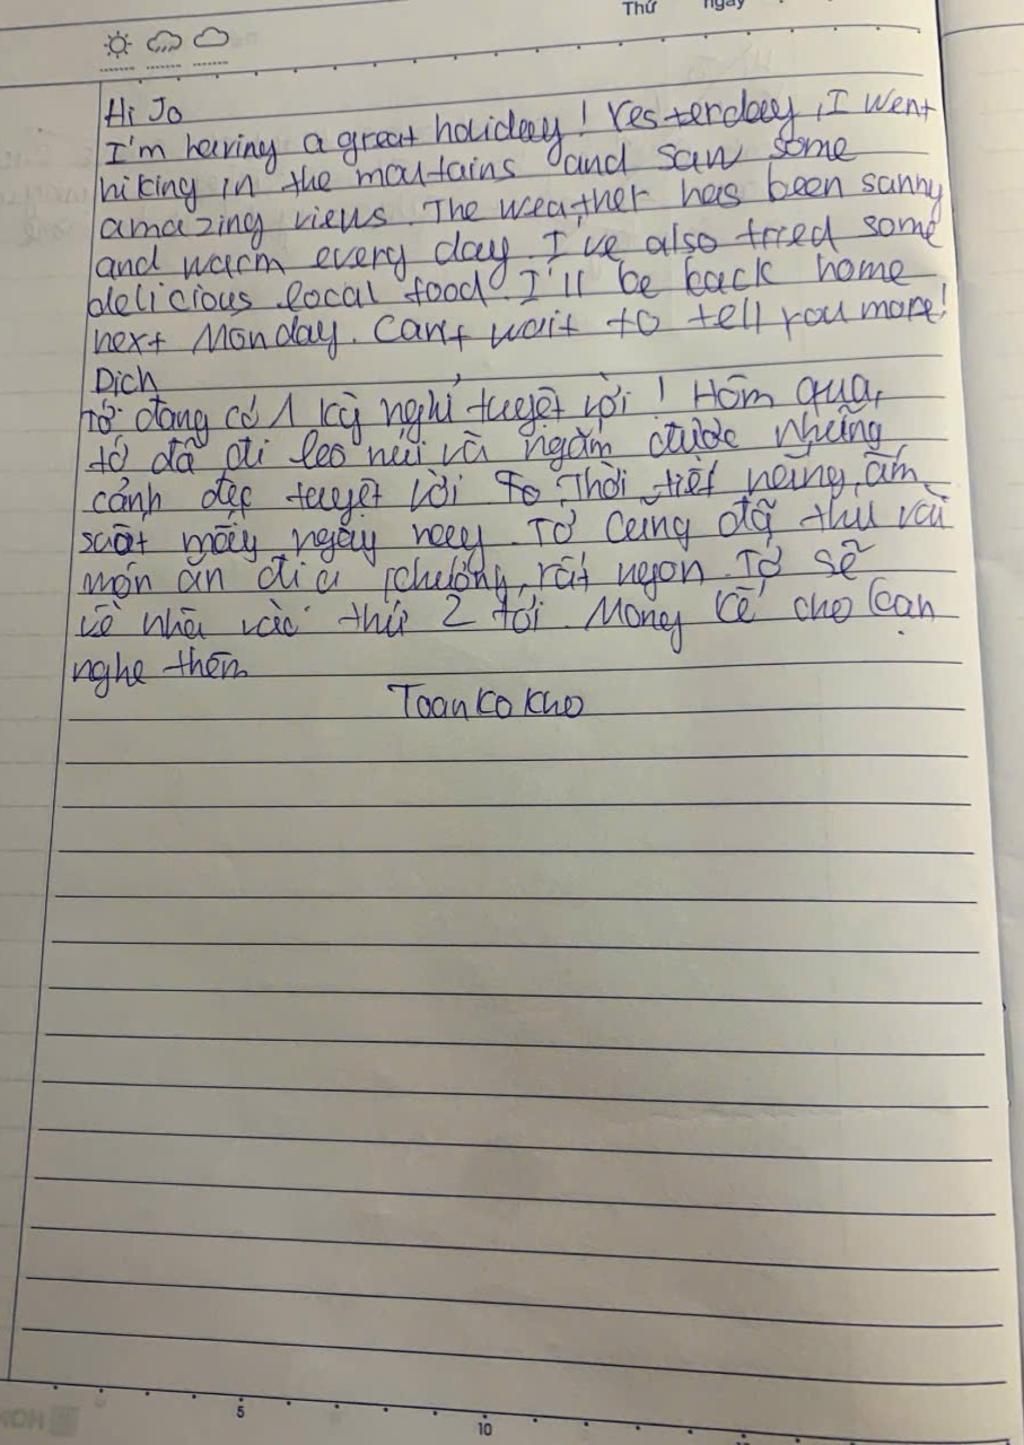 Thứ ngày
Hi Jo
I'm having a great holiday! Yesterday, I went
hiking in the mountains and saw some
amazing views. The weather has been sunny
and warm every day. I've also tried some
delicious local food. I'll be back home
next Monday. Can't wait to tell you more!
Dịch
Tớ đang có 1 kỳ nghỉ tuyệt vời! Hôm qua,
tớ đã đi leo núi và ngắm được những
cảnh đẹp tuyệt vời Thời tiết nắng, ấm
suốt mấy ngày nay. Tớ cũng đã thử vài
món ăn địa phương, rất ngon. Tớ sẽ
về nhà vào thứ 2 tới. Mong kể cho bạn
nghe thêm
Toan Ko Kho
5
10